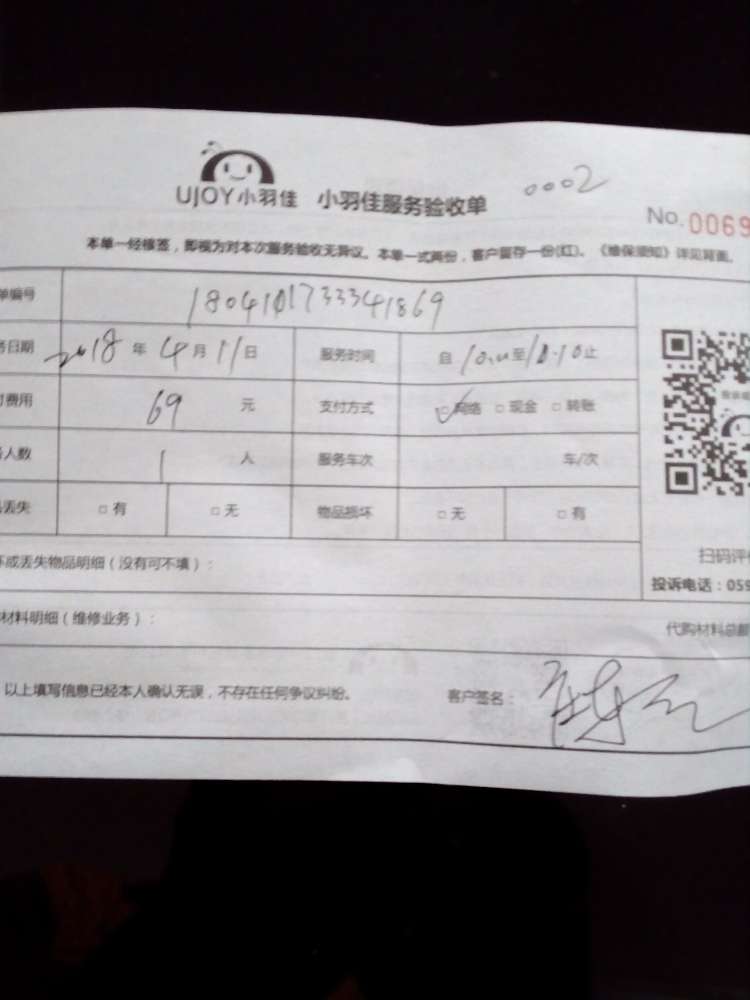 0002
UJOY小羽佳 小羽佳服务验收单
No. 0069
本单一经修签，即视为对本次服务验收无异议。本单一式两份，客户留存一份(红)。《维保须知》详见背面。
单编号 1804101733341869
务日期 2018 年 4 月 11 日 服务时间 自 至 止
付费用 69 元 支付方式 ☑网络 □现金 □转账
务人数 1 人 服务车次 车/次
品丢失 □有 □无 物品损坏 □无 □有
扫码评价
坏或丢失物品明细（没有可不填）：
投诉电话：059
材料明细（维修业务）：
代购材料总额
以上填写信息已经本人确认无误，不存在任何争议纠纷。 客户签名：